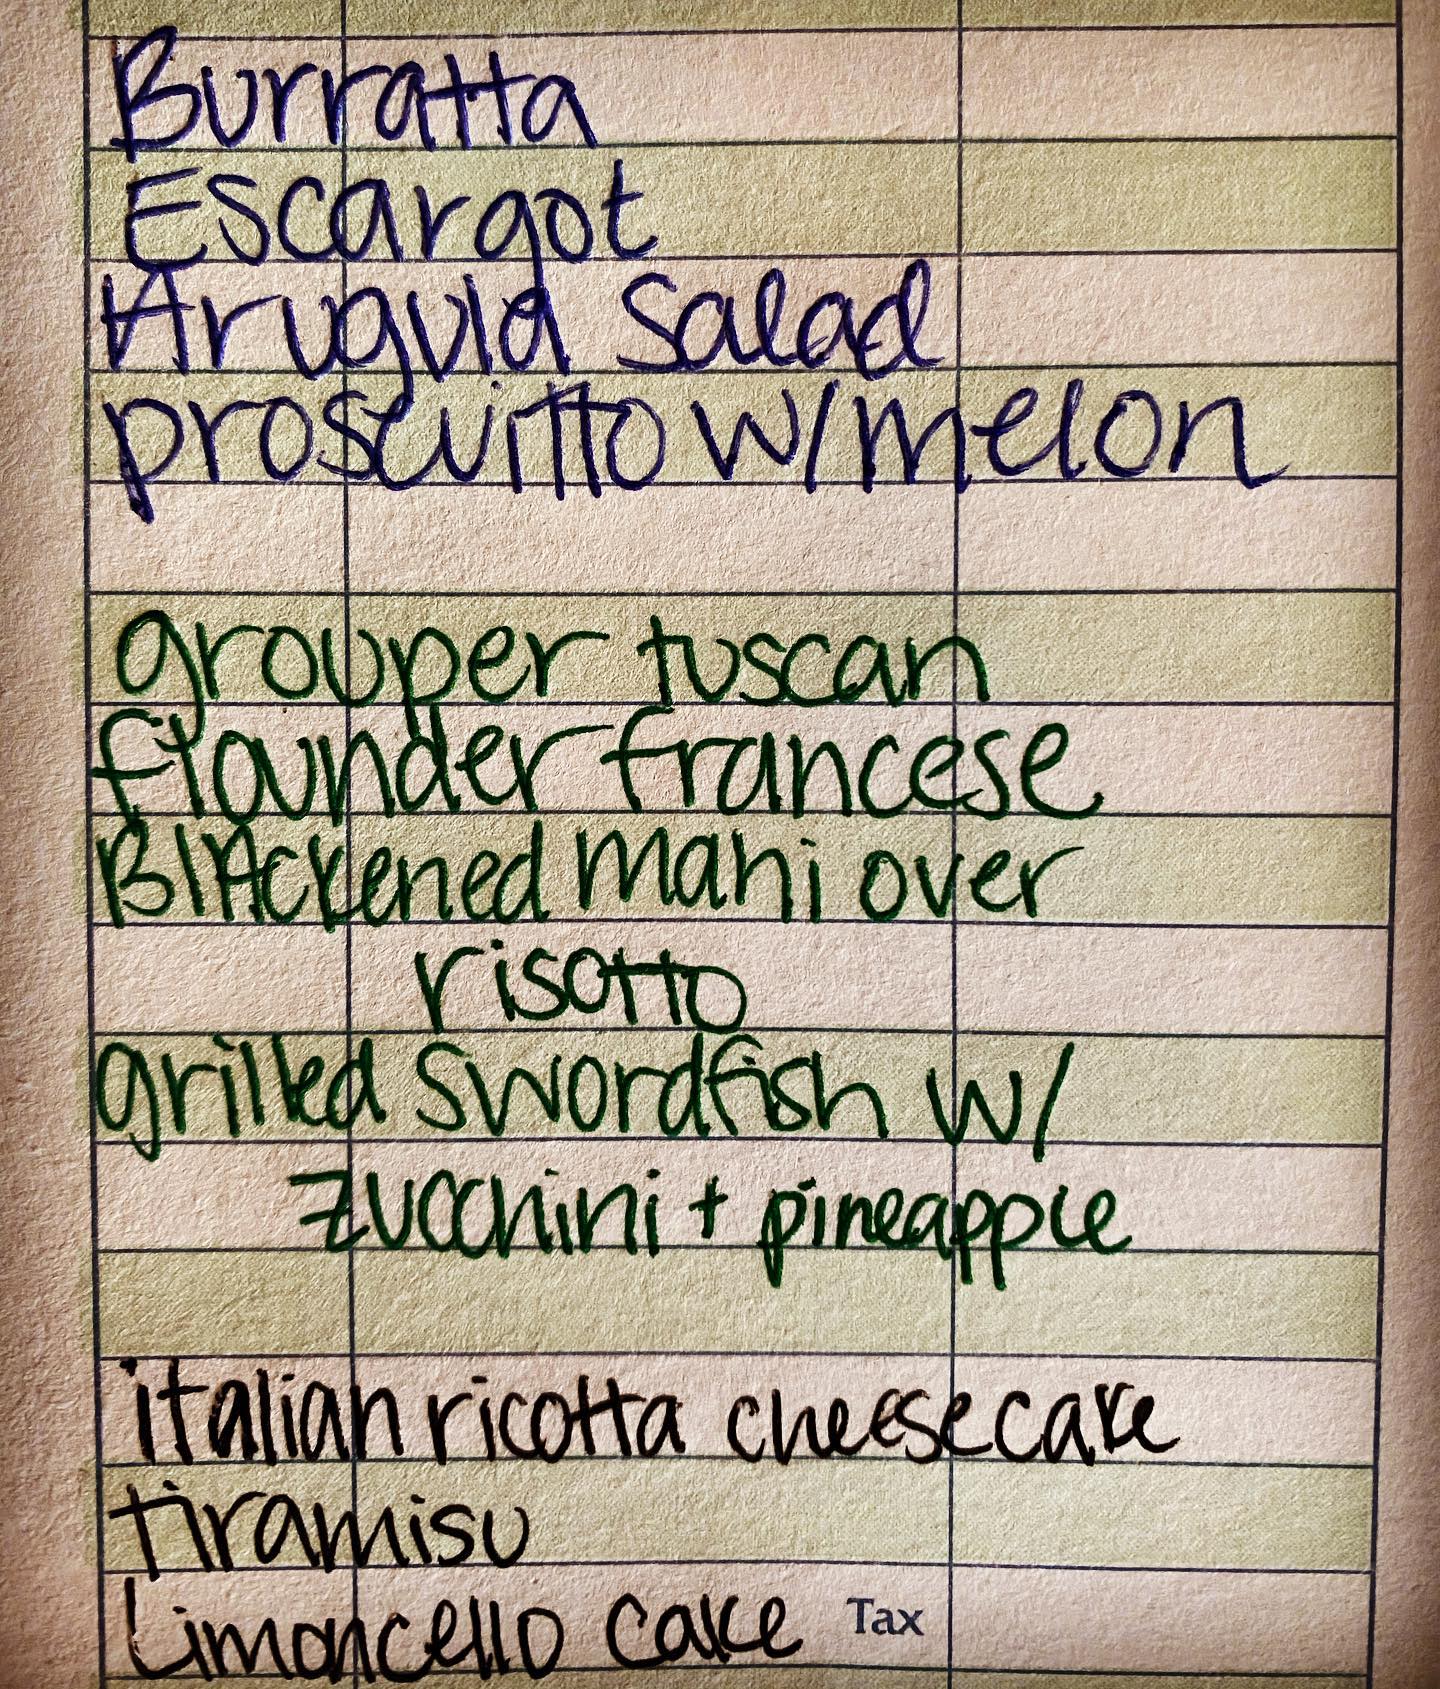 Burratta
Escargot
Arugula Salad
proscuitto w/melon
grouper tuscan
flounder francese
BlAckened mahi over
risotto
grilled swordfish w/
zucchini + pineapple
italian ricotta cheesecake
tiramisu
Limoncello cake Tax